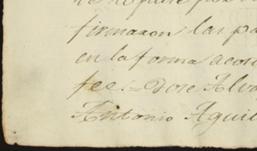 firmaron las pa
en la forma acos
fee: Jose Alva
Antonio Aguil